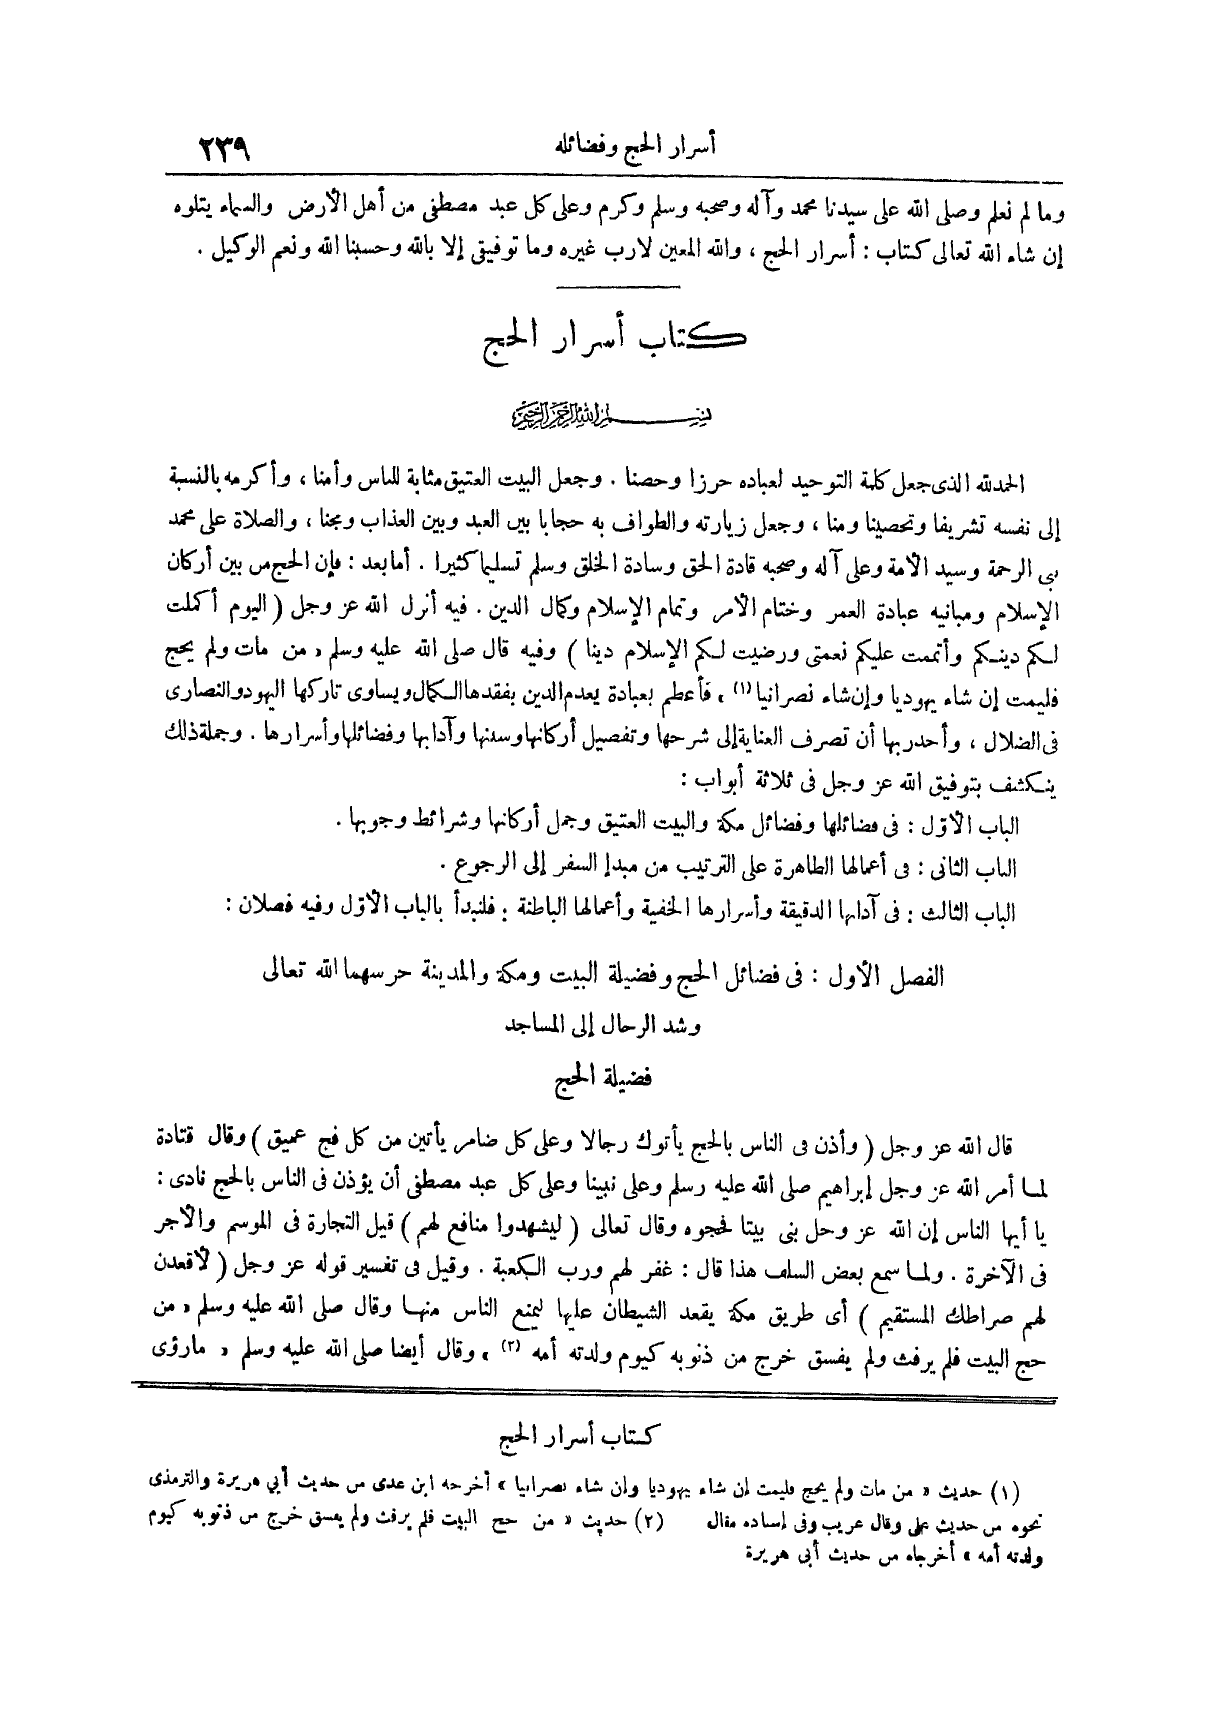 أسرار الحج وفضائله ٢٣٩
وما لم نعلم وصلى الله على سيدنا محمد وآله وصحبه وسلم وكرم وعلى كل عبد مصطفى من أهل الأرض والسماء يتلوه
إن شاء الله تعالى كتاب : أسرار الحج ، والله المعين لارب غيره وما توفيقى إلا بالله وحسبنا الله ونعم الوكيل .
كتاب أسرار الحج
بسم الله الرحمن الرحيم
الحمدلله الذى جعل كلمة التوحيد لعباده حرزا وحصنا . وجعل البيت العتيق مثابة للناس وأمنا ، وأكرمه بالنسبة
إلى نفسه تشريفا وتحصينا ومنا ، وجعل زيارته والطواف به حجابا بين العبد وبين العذاب ومجنا ، والصلاة على محمد
نبى الرحمة وسيد الأمة وعلى آله وصحبه قادة الحق وسادة الخلق وسلم تسليما كثيرا . أمابعد : فإن الحج من بين أركان
الإسلام ومبانيه عبادة العمر وختام الأمر وتمام الإسلام وكمال الدين . فيه أنزل الله عز وجل ( اليوم أكملت
لكم دينكم وأتممت عليكم نعمتى ورضيت لكم الإسلام دينا ) وفيه قال صلى الله عليه وسلم « من مات ولم يحج
فليمت إن شاء يهوديا وإن شاء نصرانيا (١) » فأعظم بعبادة يعدم الدين بفقدها الكمال ويساوى تاركها اليهود والنصارى
فى الضلال ، وأجدر بها أن تصرف العناية إلى شرحها وتفصيل أركانها وسننها وآدابها وفضائلها وأسرارها . وجملة ذلك
ينكشف بتوفيق الله عز وجل فى ثلاثة أبواب :
الباب الأوّل : فى فضائلها وفضائل مكة والبيت العتيق وجمل أركانها وشرائط وجوبها .
الباب الثانى : فى أعمالها الظاهرة على الترتيب من مبدإ السفر إلى الرجوع .
الباب الثالث : فى آدابها الدقيقة وأسرارها الخفية وأعمالها الباطنة . فلنبدأ بالباب الأوّل وفيه فصلان :
الفصل الأول : فى فضائل الحج وفضيلة البيت ومكة والمدينة حرسهما الله تعالى
وشد الرحال إلى المساجد
فضيلة الحج
قال الله عز وجل ( وأذن فى الناس بالحج يأتوك رجالا وعلى كل ضامر يأتين من كل فج عميق ) وقال قتادة
لما أمر الله عز وجل إبراهيم صلى الله عليه وسلم وعلى نبينا وعلى كل عبد مصطفى أن يؤذن فى الناس بالحج نادى :
يا أيها الناس إن الله عز وجل بنى بيتا فحجوه وقال تعالى ( ليشهدوا منافع لهم ) قيل التجارة فى الموسم والأجر
فى الآخرة . ولما سمع بعض السلف هذا قال : غفر لهم ورب الكعبة . وقيل فى تفسير قوله عز وجل ( لأقعدن
لهم صراطك المستقيم ) أى طريق مكة يقعد الشيطان عليها ليمنع الناس منها وقال صلى الله عليه وسلم « من
حج البيت فلم يرفث ولم يفسق خرج من ذنوبه كيوم ولدته أمه (٢) » وقال أيضا صلى الله عليه وسلم « مارؤى
كتاب أسرار الحج
(١) حديث « من مات ولم يحج فليمت إن شاء يهوديا وإن شاء نصرانيا » أخرجه ابن عدى من حديث أبي هريرة والترمذى
نحوه من حديث على وقال غريب وفى إسناده مقال (٢) حديث « من حج البيت فلم يرفث ولم يفسق خرج من ذنوبه كيوم
ولدته أمه » أخرجاه من حديث أبى هريرة